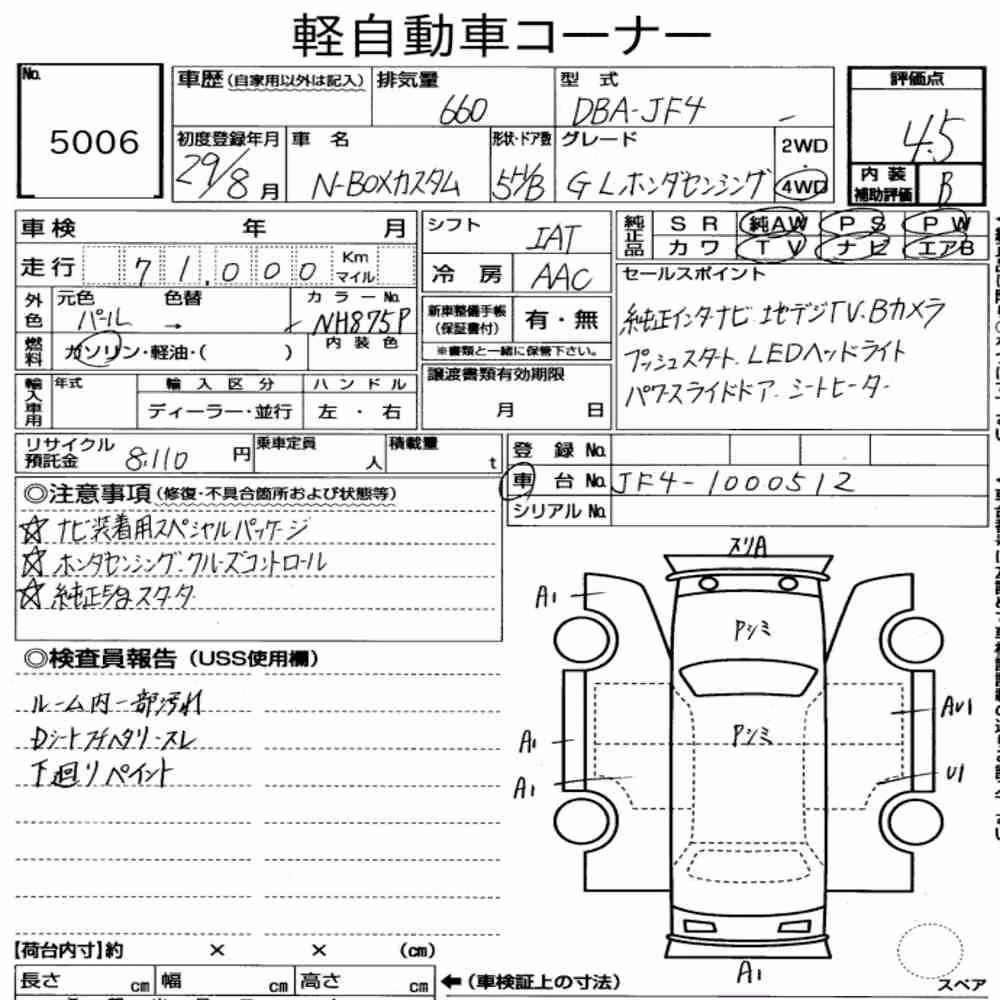 軽自動車コーナー
No.
5006
車歴(自家用以外は記入)
排気量
660
型式
DBA-JF4 -
評価点
4.5
初度登録年月
29/8月
車名
N-BOXカスタム
形状・ドア数
グレード
GLホンダセンシング
2WD
・
4WD
内装
補助評価
B
車検 年 月
走行 71,000 Km
マイル
外色
元色 色替
パール →
カラーNo.
NH875P
燃料
ガソリン・軽油・( )
内装色
輸入車用
年式
輸入区分
ディーラー・並行
ハンドル
左・右
シフト
IAT
冷房
AAC
新車整備手帳
(保証書付)
有・無
※書類と一緒に保管下さい。
譲渡書類有効期限
月 日
純正品
SR 純AW PS PW
カワ TV ナビ エアB
セールスポイント
純正インターナビ 地デジTV.Bカメラ
プッシュスタート. LEDヘッドライト
パワースライドドア. シートヒーター
リサイクル
預託金 8.110 円
乗車定員
人
積載量
t
登録No.
車台No. JF4-1000512
シリアルNo.
◎注意事項(修復・不具合箇所および状態等)
☆ナビ装着用スペシャルパッケージ
☆ホンダセンシング.クルーズコントロール
☆純正スターター
◎検査員報告(USS使用欄)
ルーム内一部汚れ
Dシート スレ
下廻りペイント
スリA
A1
Pシミ
Pシミ
AU1
A1
A1
U1
A1
スペア
【荷台内寸】約 × × (cm)
長さ cm 幅 cm 高さ cm
←(車検証上の寸法)